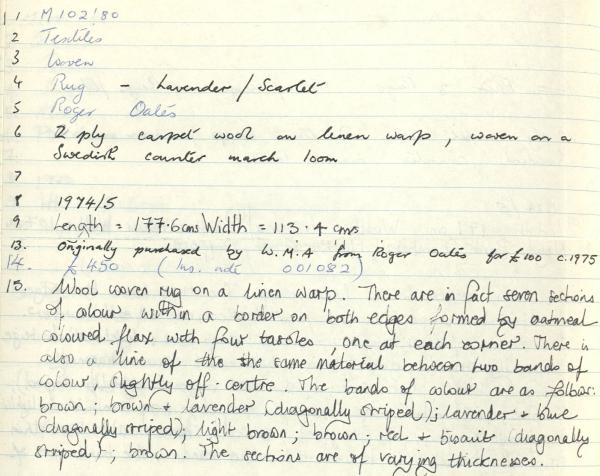 1 M 102'80
2 Textiles
3 Woven
4 Rug - Lavender / Scarlet
5 Roger Oates
6 2 ply carpet wool on linen warp, woven on a
Swedish counter march loom
7
8 1974/5
9 Length = 177.6cms Width = 113.4 cms
13. Originally purchased by W.M.A from Roger Oates for £100 c.1975
14. £450 (Ins. note 001082)
15. Wool woven rug on a linen warp. There are in fact seven sections
of colour within a border on both edges formed by oatmeal
coloured flax with four tassles, one at each corner. There is
also a line of the the same material between two bands of
colour, slightly off-centre. The bands of colour are as follows:
brown; brown + lavender (diagonally striped); lavender + blue
(diagonally striped); light brown; brown; red + biscuit (diagonally
striped); brown. The sections are of varying thicknesses.